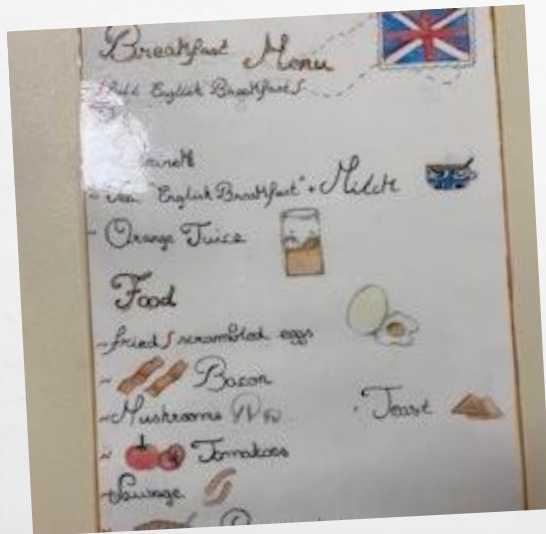 Breakfast Menu
Full English Breakfast
"English Breakfast" + Milch
- Orange Juice
Food
- fried / scrambled eggs
- Bacon
- Mushrooms
- Toast
- Tomatoes
- Sausage